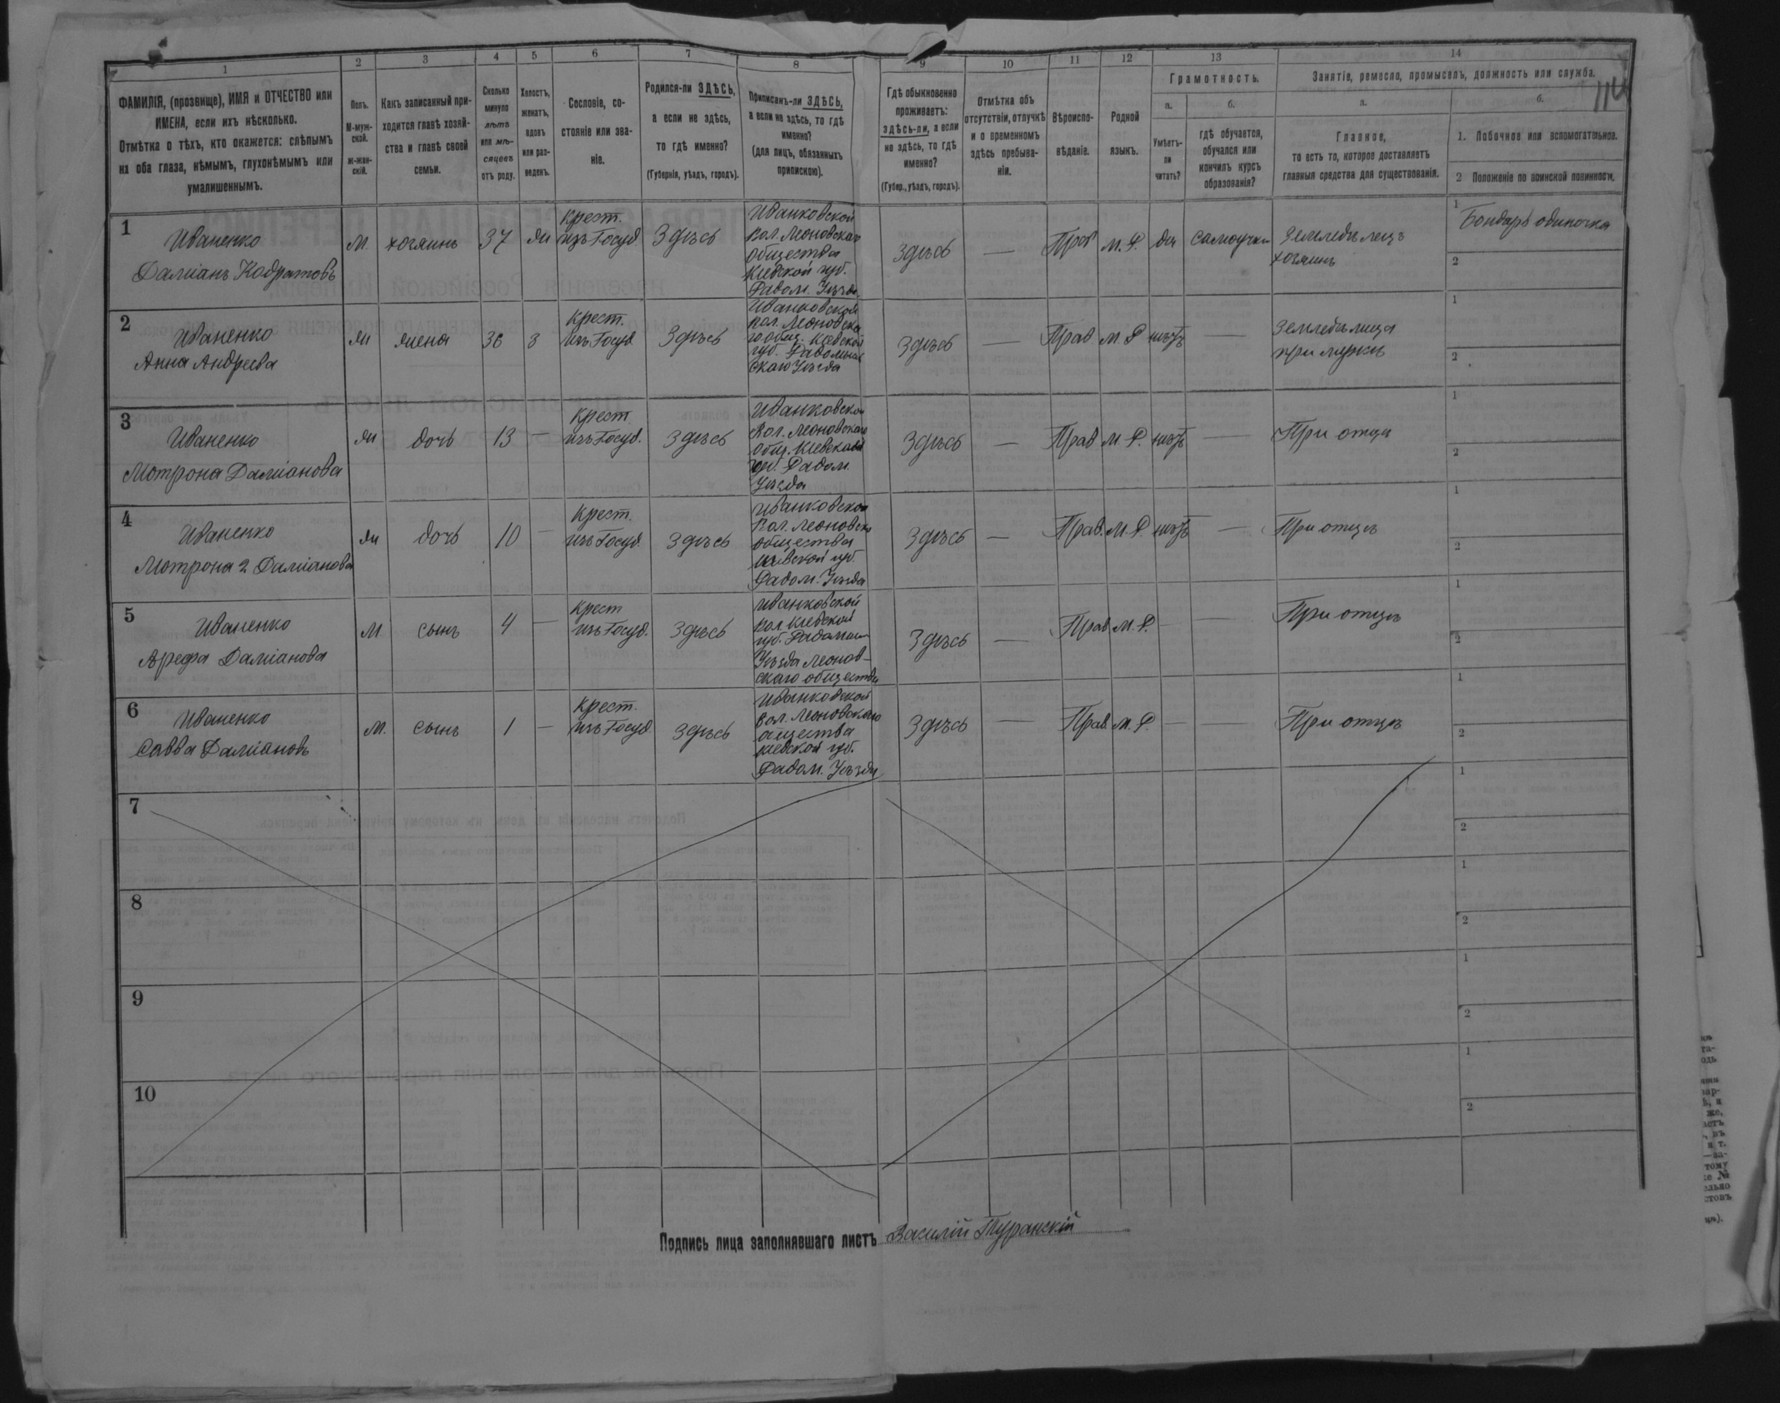 1 2 3 4 5 6 7 8 9 10 11 12 13 14
ФАМИЛІЯ, (прозвище), ИМЯ и ОТЧЕСТВО или
ИМЕНА, если ихъ нѣсколько.
Отмѣтка о тѣхъ, кто окажется: слѣпымъ
на оба глаза, нѣмымъ, глухонѣмымъ или
умалишеннымъ.
Полъ.
М-муж-
ской.
ж-жен-
скій.
Какъ записанный при-
ходится главѣ хозяй-
ства и главѣ своей
семьи.
Сколько
минуло
лѣтъ
или мѣ-
сяцевъ
отъ роду.
Холостъ,
женатъ,
вдовъ
или раз-
веденъ.
Сословіе, со-
стояніе или зва-
ніе.
Родился-ли ЗДѢСЬ,
а если не здѣсь,
то гдѣ именно?
(Губернія, уѣздъ, городъ).
Приписанъ-ли ЗДѢСЬ,
а если не здѣсь, то гдѣ
именно?
(для лицъ, обязанныхъ
припискою).
Гдѣ обыкновенно
проживаетъ:
здѣсь-ли, а если
не здѣсь, то гдѣ
именно?
(Губер., уѣздъ, городъ).
Отмѣтка объ
отсутствіи, отлучкѣ
и о временномъ
здѣсь пребыва-
ніи.
Вѣроиспо-
вѣданіе.
Родной
языкъ.
Грамотность.
а.
Умѣетъ-
ли
читать?
б.
гдѣ обучается,
обучался или
кончилъ курсъ
образованія?
Занятіе, ремесло, промыселъ, должность или служба.
114
а.
Главное,
то есть то, которое доставляетъ
главныя средства для существованія.
б.
1. Побочное или вспомогательное.
2 Положеніе по воинской повинности.
1
Иваненко
Даміанъ Кодратовъ
м. хозяинъ 37 жн
Крест.
изъ Госуд.
Здѣсь
Иванковской
вол. Леоновскаго
общества
Кіевской губ.
Радом. Уѣзда
Здѣсь — Прав М. Р. да самоучки
Земледѣлецъ
хозяинъ
1 Бондарь одиночка
2
2
Иваненко
Анна Андреева
жн жена 36 з
Крест.
изъ Госуд
Здѣсь
Иванковской
вол. Леоновска
го общ. Кіевской
губ. Радомысль
скаго Уѣзда
Здѣсь — Прав М. Р нѣтъ —
Земледѣлица
при мужѣ
1
2
3
Иваненко
Мотрона Даміанова
жн дочь 13 —
Крест
изъ Госуд.
Здѣсь
Иванковской
Вол. Леоновскаго
общ. Кіевской
губ. Радом.
Уѣзда
Здѣсь — Прав М. Р. нѣтъ — При отцѣ
1
2
4
Иваненко
Мотрона 2 Даміанова
жн дочь 10 —
Крест.
изъ Госуд.
Здѣсь
Иванковской
Вол. Леоновска
общества
Кіевской губ.
Радом. Уѣзда
Здѣсь — Прав. М. Р. нѣтъ — При отцѣ
1
2
5
Иваненко
Арефа Даміанова
М сынъ 4 —
Крест
изъ Госуд.
Здѣсь
Иванковской
вол Кіевской
губ. Радомы
Уѣзда Леонов-
скаго общества
Здѣсь — Прав М. Р. — — При отцѣ
1
2
6
Иваненко
Савва Даміановъ
М. сынъ 1 —
Крест.
изъ Госуд
Здѣсь
Иванковской
вол. Леоновскаго
общества
Кіевской губ.
Радом. Уѣзда
Здѣсь — Прав. М. Р. — — При отцѣ
1
2
7
1
2
8
1
2
9
1
2
10
1
2
Подпись лица заполнявшаго листъ Василій Туранскій